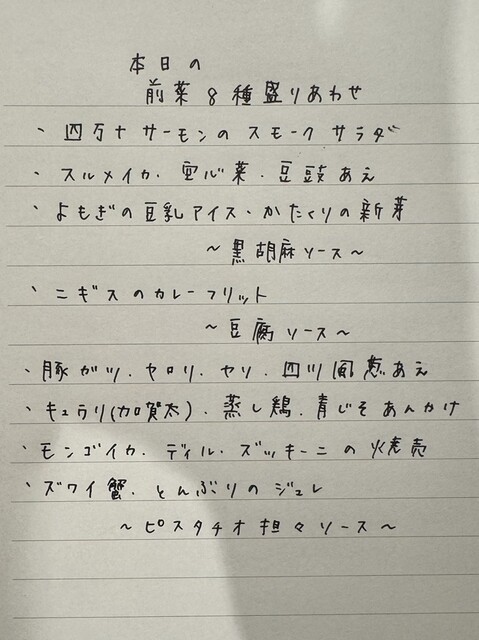 本日の
前菜8種盛りあわせ
・四万十サーモンのスモークサラダ
・スルメイカ・空心菜・豆豉あえ
・よもぎの豆乳アイス・かたくりの新芽
～黒胡麻ソース～
・ニギスのカレーフリット
～豆腐ソース～
・豚ガツ・セロリ・セリ・四川風葱あえ
・キュウリ(加賀太)・蒸し鶏・青じそあんかけ
・モンゴイカ・ディル・ズッキーニの焼売
・ズワイ蟹・とんぶりのジュレ
～ピスタチオ担々ソース～